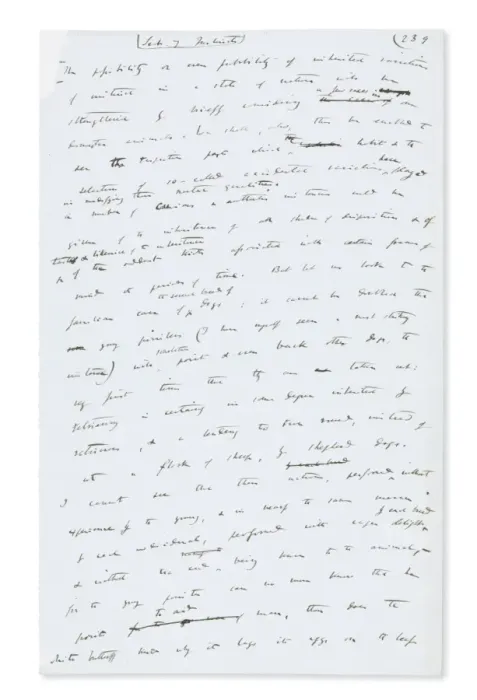 Sect. 7 Instinct (239
The possibility or even probability of inherited variations
of instinct in a state of nature will be
strengthened by briefly considering a few cases in our
domestic animals. We shall, also, thus be enabled to
see the respective part which habit & the
selection of so-called accidental variations, have played
in modifying their mental qualities.
A number of curious & authentic instances could be
given of the inheritance of all shades of disposition & of
tastes & likewise of the oddest tricks associated with certain frames of
mind or periods of time. But let us look to the
familiar case of the several breeds of dogs: it cannot be doubted that
young pointers (I have myself seen a most striking
instance) will sometimes point & even back other dogs, the
very first time that they are taken out:
retrieving is certainly in some degree inherited by
retrievers; & a tendency to run round, instead of
at a flock of sheep, by shepherd dogs.
I cannot see that these actions, performed without
experience by the young, & in nearly the same manner
by each individual, performed with eager delight by each breed
& without the end being known to the animal, —
for the young pointer can no more know that he
points to aid man, than does the
white butterfly know why it lays its eggs on the leaf